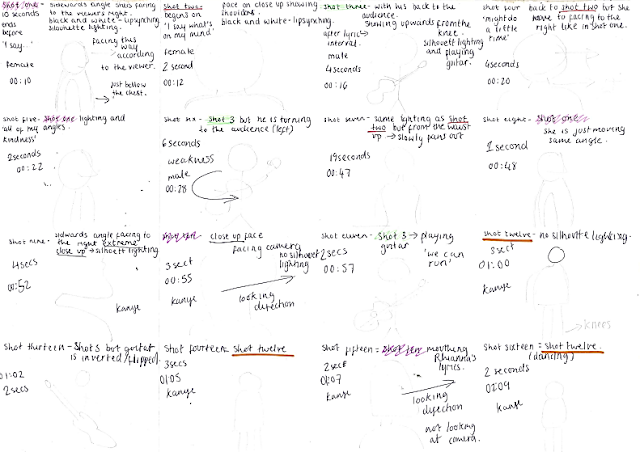 Shot one - sidewards angle shots facing
10 seconds to the viewer's right.
ends black and white - lipsynching
before silhouette lighting.
'I say...'
female
00:10
facing this
way
according
to the viewer.
just below
the chest.
Shot two -
begins on
'I say what's
on my mind'
female
2 second
00:12
face on close up showing
shoulders.
black and white - lipsynching.
Shot three - with his back to the
audience.
showing upwards from the
knee.
after lyric
interval.
male
4 seconds
00:16
silhouett lighting
and playing
guitar.
Shot four back to shot two but she
'might do
a little
time'
to facing to the
right like in shot one.
4 seconds
00:20
Shot five - shot one lighting and
'all of my angles.
kindness'
2 seconds
00:22
Shot six - shot 3 but he is turning
to the audience (left)
6 seconds
weakness
male
00:28
Shot seven - same lighting as shot
two but from the waist
up → slowly pans out
19 seconds
00:47
Shot eight - shot one
she is just moving
same angle.
1 second
00:48
Shot nine - sidwards angle facing to
the right extreme
close up → silhouett lighting
4 secs
00:52
kanye
close up face
facing camera
no silhouett
lighting
3 sect
00:55
looking
direction
kanye
Shot eleven - shot 3 → playing
guitar
2 secs
00:57
'we can
run'
Shot twelve - no silhouette lighting.
3 sect
01:00
kanye
knees
Shot thirteen - shot 3 but guitar
is inverted/flipped.
01:02
2 secs
Shot fourteen = shot twelve
3 secs
01:05
kanye
Shot fifteen = shot ten mouthing
Rhianna's
lyrics.
2 sect
01:07
kanye
looking
direction
not looking
at camera.
Shot sixteen = shot twelve
(dancing)
2 seconds
01:09
kanye